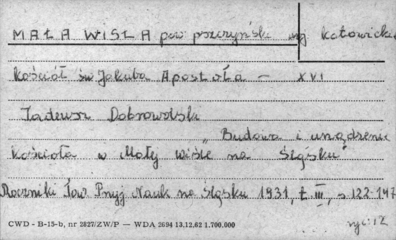 MAŁA WISŁA pow pszczyński woj katowickie
Kościół św Jakuba Apostoła - XVI
Tadeusz Dobrowolski
"Budowa i urządzenie
kościoła w Małej Wiśle na Śląsku"
Roczniki Tow Przyj Nauk na Śląsku 1931, t. III, s 122-147
CWD - B-15-b, nr 2827/ZW/P — WDA 2694 13.12.62 1.700.000
ryc: 12